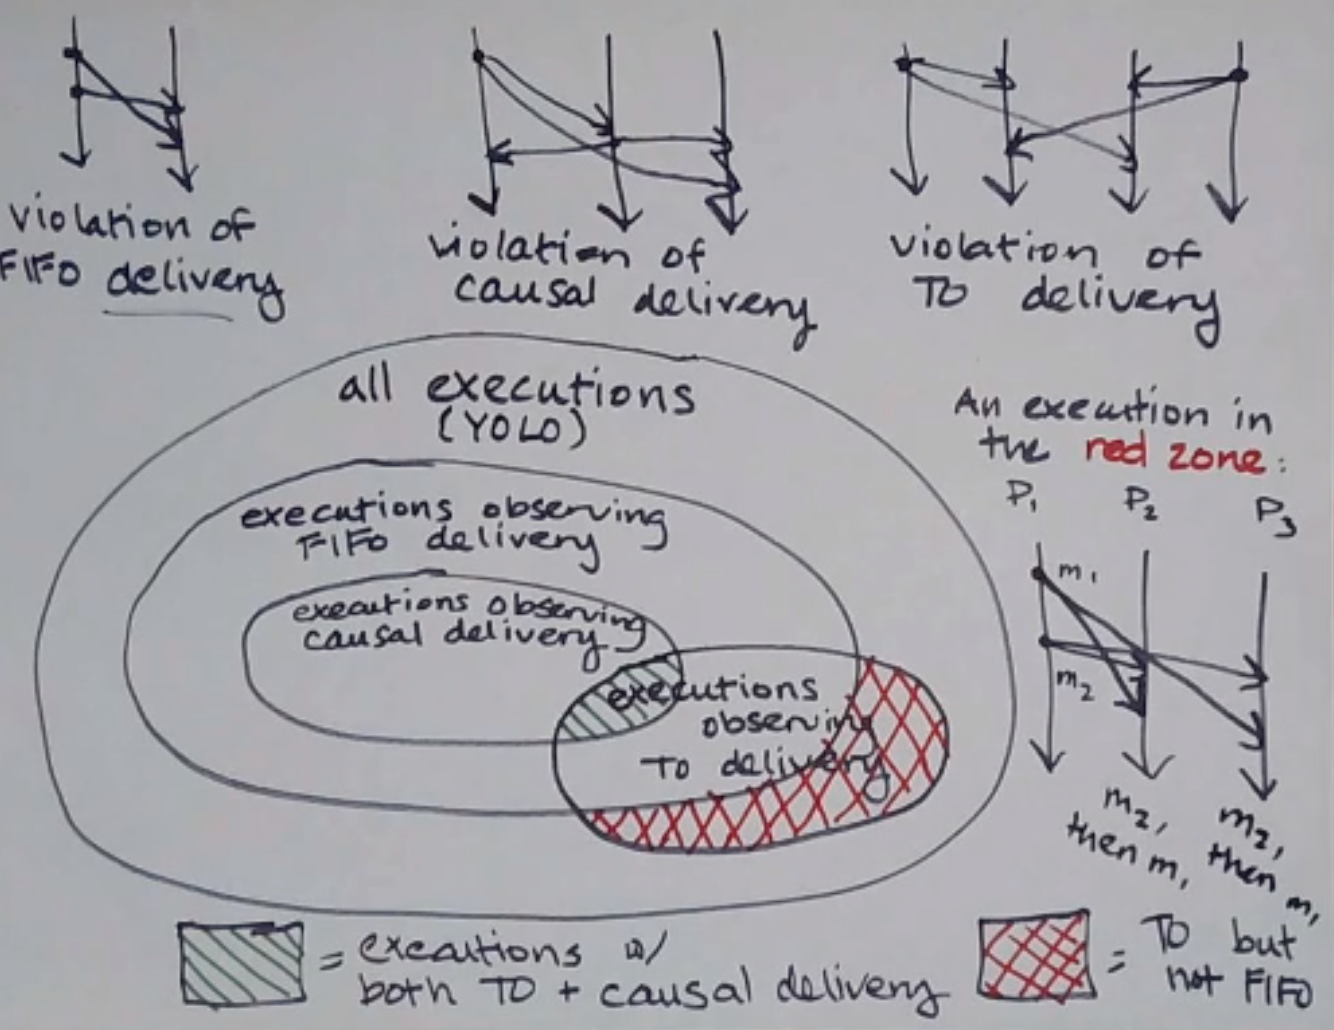 violation of
FIFO delivery
violation of
causal delivery
violation of
TO delivery
all executions
(YOLO)
executions observing
FIFO delivery
executions observing
causal delivery
executions
observing
TO delivery
An execution in
the red zone:
P1
P2
P3
m1
m2
m2,
then m1
m2,
then m1
= executions w/
both TO + causal delivery
= TO but
not FIFO